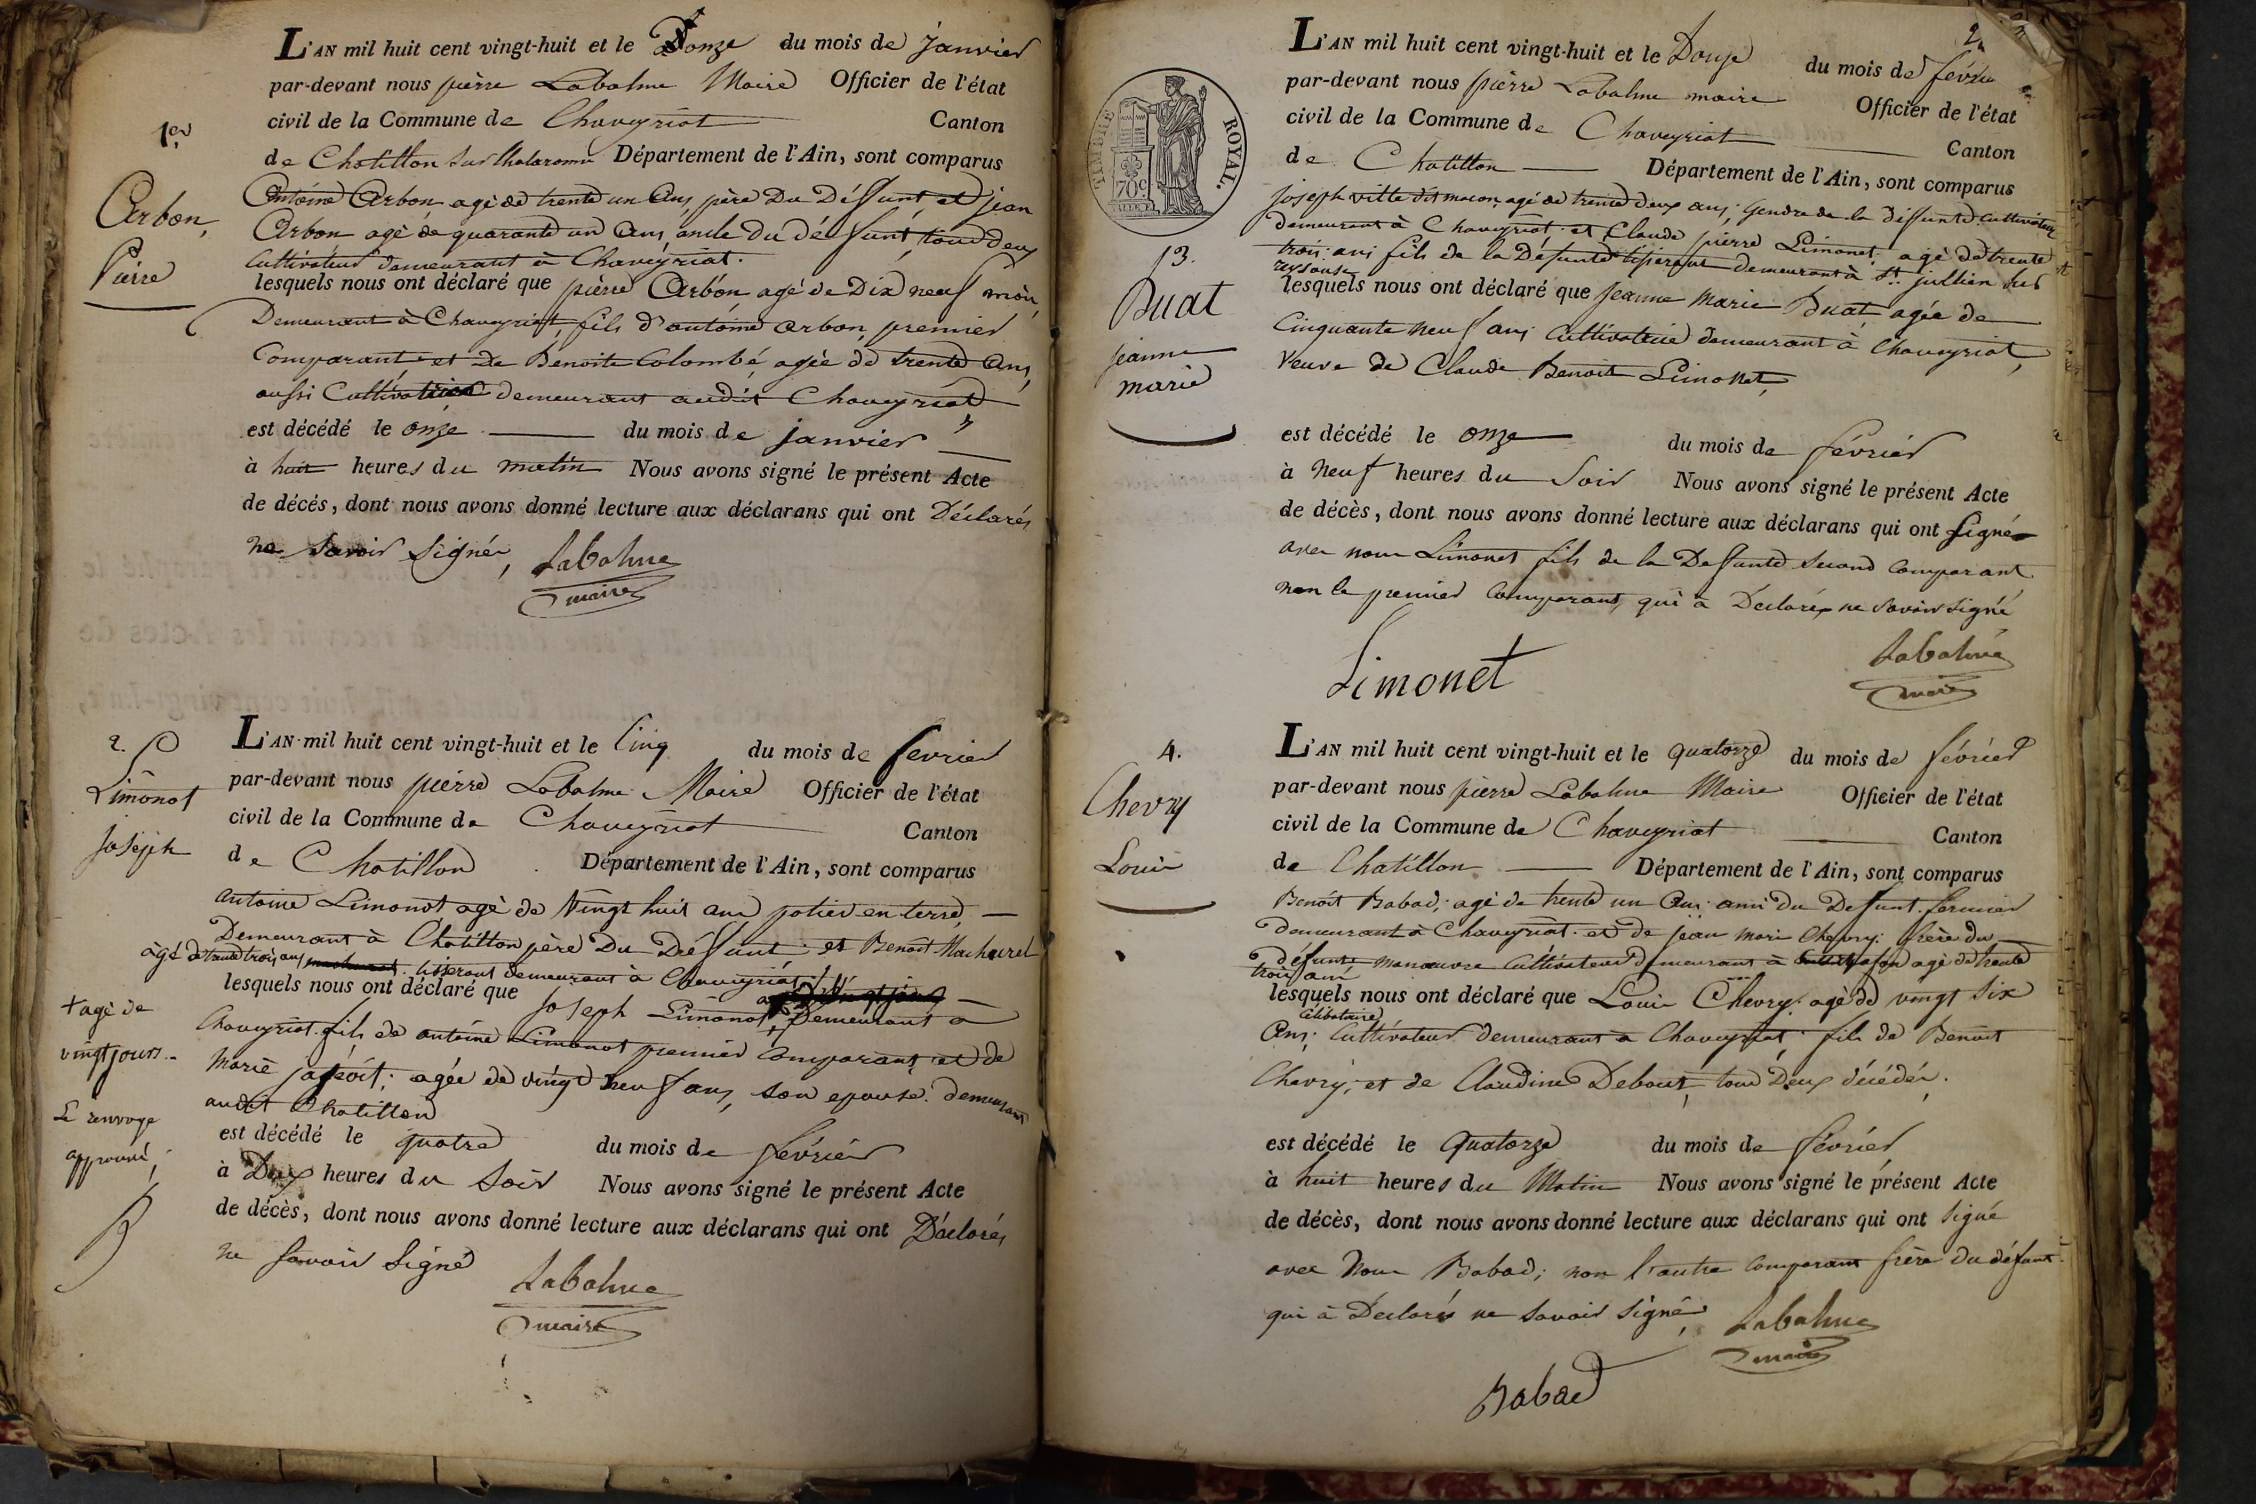 1er
Carbon,
Pierre
L'AN mil huit cent vingt-huit et le onze du mois de janvier
par-devant nous pierre Labalme Maire Officier de l'état
civil de la Commune de Chaveyriat Canton
de Chatillon sur Chalaronne Département de l'Ain, sont comparus
Antoine Carbon agé de trente un Ans, père Du Défunt et jean
Carbon agé de quarante un Ans, oncle du défunt, tous deux
Cultivateurs demeurant à Chaveyriat.
lesquels nous ont déclaré que pierre Carbon agé de Dix neuf mois,
Demeurant à Chaveyriat, fils d'antoine Carbon, premier
Comparant et De Benoite Colombé, agée de trente Ans,
aussi Cultivatrice demeurant audit Chaveyriat
est décédé le onze du mois de janvier
à huit heures du matin Nous avons signé le présent Acte
de décés, dont nous avons donné lecture aux déclarans qui ont Déclarés
ne savoir signér, Labalme
maire
2.
Limonot
joseph
L'AN mil huit cent vingt-huit et le Cinq du mois de fevrier
par-devant nous pierre Labalme Maire Officier de l'état
civil de la Commune de Chaveyriat Canton
de Chatillon Département de l'Ain, sont comparus
antoine Limonot agé de Vingt huit ans potier en terre,
Demeurant à Chatillon père Du Défunt et Benoit Machurel
âgé de trente trois ans tisserant demeurant à Chaveyriat
lesquels nous ont déclaré que joseph Limonot, Demeurant à
+ agé de
vingt jours.
Chaveyriat fils de antoine Limonot premier Comparant et de
Marie ; agée de vingt neuf ans, son epouse demeurant
audit Chatillon
Le renvoye
approuvé,
est décédé le quatre du mois de février
à Deux heures du Soir Nous avons signé le présent Acte
de décès, dont nous avons donné lecture aux déclarans qui ont Déclarés
ne savoir signé Labalme
maire
2
TIMBRE ROYAL.
70c
13.
Buat
jeanne
marie
L'AN mil huit cent vingt-huit et le Douze du mois de févrie
par-devant nous pierre Labalme maire Officier de l'état
civil de la Commune de Chaveyriat Canton
de Chatillon Département de l'Ain, sont comparus
joseph ville dit macon, agé de trente deux ans; Gendre de la défunte Cultivateur
demeurant à Chaveyriat et Claude pierre Limonet agé de trente
trois ans fils de la Défunte tisserant demeurant à St. jullien sur
reyssouse
lesquels nous ont déclaré que jeanne Marie Buat, agée de
Cinquante neuf ans Cultivatrice demeurant à Chaveyriat,
Veuve de Claude Benoit Limonet,
est décédé le onze du mois de février
à neuf heures du Soir Nous avons signé le présent Acte
de décès, dont nous avons donné lecture aux déclarans qui ont Signé
avec nous Limonet fils de la Defunte second Comparant
non le premier Comparant, qui à Declarés ne savoir signé
Limonet Labalme
maire
4.
Chevry
Louis
L'AN mil huit cent vingt-huit et le quatorze du mois de février
par-devant nous pierre Labalme Maire Officier de l'état
civil de la Commune de Chaveyriat Canton
de Chatillon Département de l'Ain, sont comparus
Benoit Babad, agé de trente un Ans ami Du Defunt fermier
demeurant à Chaveyriat et de jean Marie Chevry frère du
défunt manœuvre Cultivateur demeurant à agé de trente
trois ans
lesquels nous ont déclaré que Louis Chevry agé de vingt six
Célibataire
Ans; Cultivateur demeurant à Chaveyriat; fils de Benoit
Chevry; et de Claudine Debout, tous Deux décédés.
est décédé le Quatorze du mois de février
à huit heures du Matin Nous avons signé le présent Acte
de décès, dont nous avons donné lecture aux déclarans qui ont signé
avec Nous Babad; non l'autre Comparant frère du défunt
qui à Declarés ne savoir signé Labalme
maire
Babad